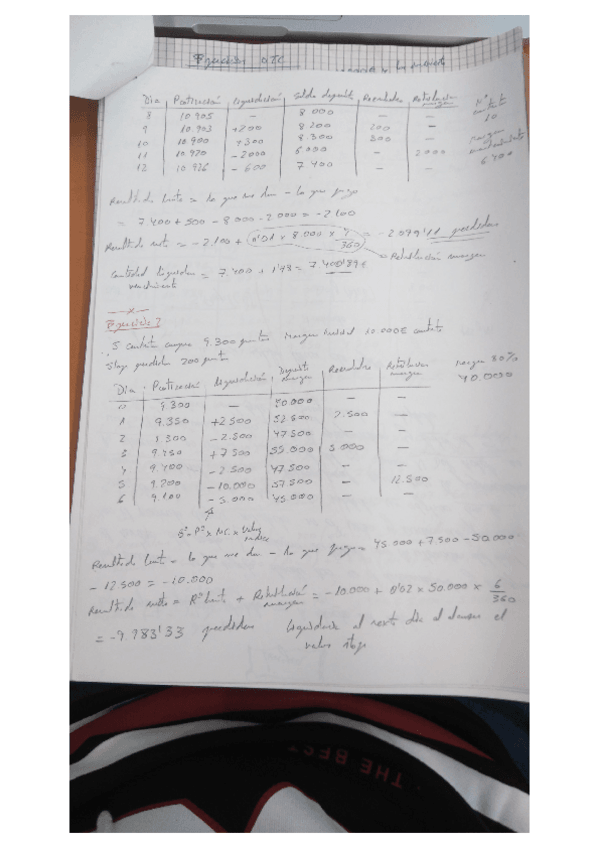 Ejercicio OTC
Dia Cotización Liquidación Saldo deposito Retirada Restitución margen Nº
8 10.905 — 8 000 — — contratos
9 10.903 +200 8 200 200 — 10
10 10.900 +300 8 300 300 — margen
11 10.920 -2000 6 000 — 2.000 mantenimiento
12 10.926 -600 7 400 — — 6 400
Resultado bruto = lo que me dan - lo que pago
= 7.400 + 500 - 8.000 - 2.000 = -2.100
Resultado neto = -2.100 + 8.000 x 360 = -2.079'11 perdidas
Retribución margen
Cantidad liquidar = 7.400 = 7.400'89€
vencimiento
Ejercicio 7
5 contratos compra 9.300 puntos margen inicial 10.000€ contrato
Stop perdidas 200 puntos
Dia Cotización Liquidación Deposito margen Retirada Restitución margen margen 80%
0 9.300 — 50.000 — — 40.000
1 9.350 +2.500 52.500 2.500 —
2 9.300 -2.500 47.500 — —
3 9.450 +7.500 55.000 5.000 —
4 9.400 -2.500 47.500 — —
5 9.200 -10.000 37.500 — 12.500
6 9.100 -5.000 45.000 — —
x Nc. x Valor
indice
Resultado bruto = lo que me dan - lo que pago = 45.000 + 7.500 - 50.000
- 12.500 = -10.000
Resultado neto = Rº bruto + Retribución margen = -10.000 + 0'02 x 50.000 x 6/360
= -9.983'33 perdidas Liquidaria al sexto dia al alcanzar el
valor stop
THE BEST